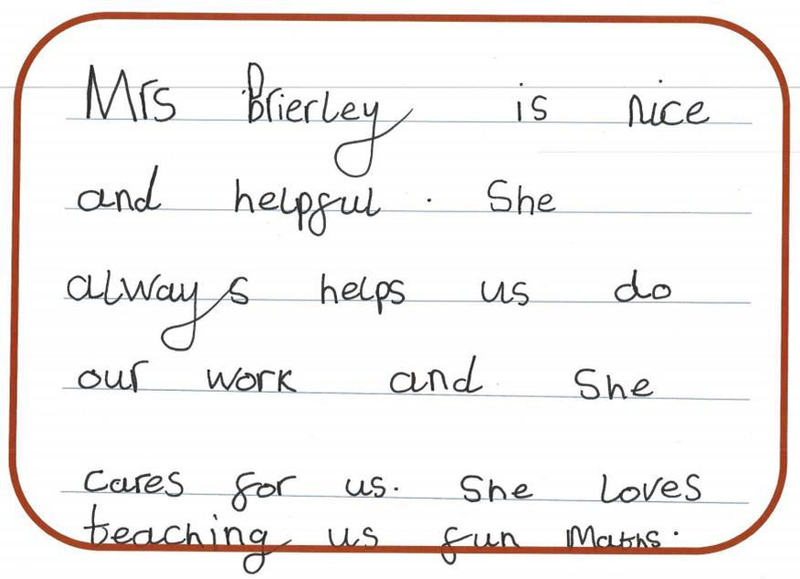 Mrs Brierley is nice
and helpful. She
always helps us do
our work and She
cares for us. She loves
teaching us fun Maths.